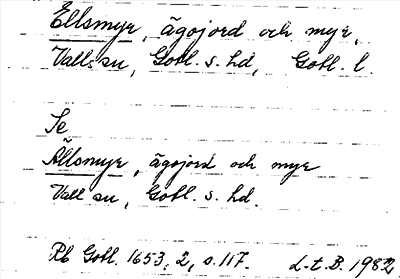 Ellsmyr, ägojord och myr,
Valls sn, Gotl. s. hd, Gotl. l.
Se
Ällsmyr, ägojord och myr
Vall sn, Gotl. s. hd.
Rb Gotl. 1653, 2, s. 117. L-t. B. 1982